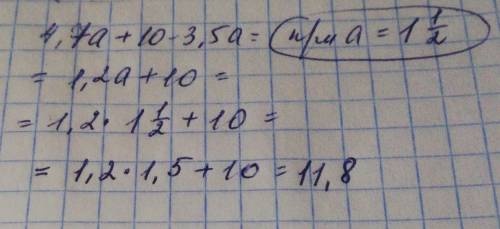 4,7a + 10 - 3,5a = при a = 1 1/2
= 1,2a + 10 =
= 1,2 · 1 1/2 + 10 =
= 1,2 · 1,5 + 10 = 11,8